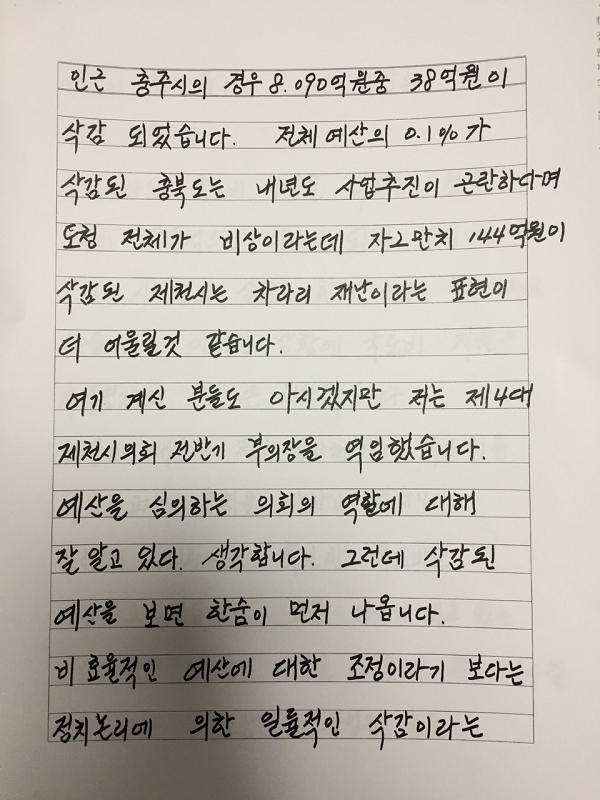 인근 충주시의 경우 8.090억원중 38억원이
삭감 되었습니다. 전체예산의 0.1%가
삭감된 충북도는 내년도 사업추진이 곤란하다며
도청 전체가 비상이라는데 자그만치 144억원이
삭감된 제천시는 차라리 재난이라는 표현이
더 어울릴것 같습니다.
여기 계신 분들도 아시겠지만 저는 제4대
제천시의회 전반기 부의장을 역임했습니다.
예산을 심의하는 의회의 역할에 대해
잘 알고 있다. 생각합니다. 그런데 삭감된
예산을 보면 한숨이 먼저 나옵니다.
비효율적인 예산에 대한 조정이라기 보다는
정치논리에 의한 일률적인 삭감이라는